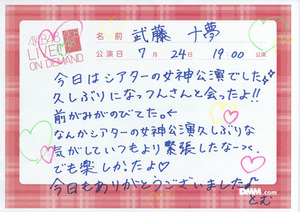 AKB48
LIVE!!
ON DEMAND
名前 武藤 十夢
公演日 7月24日 19:00 公演
今日はシアターの女神公演でした。
久しぶりになっつんさんと会ったよ!!
前がみがのびてた。
なんかシアターの女神公演久しぶりな
気がしていつもより緊張したなー
でも楽しかったよ♡
今日もありがとうございました
とむ
DMM.com